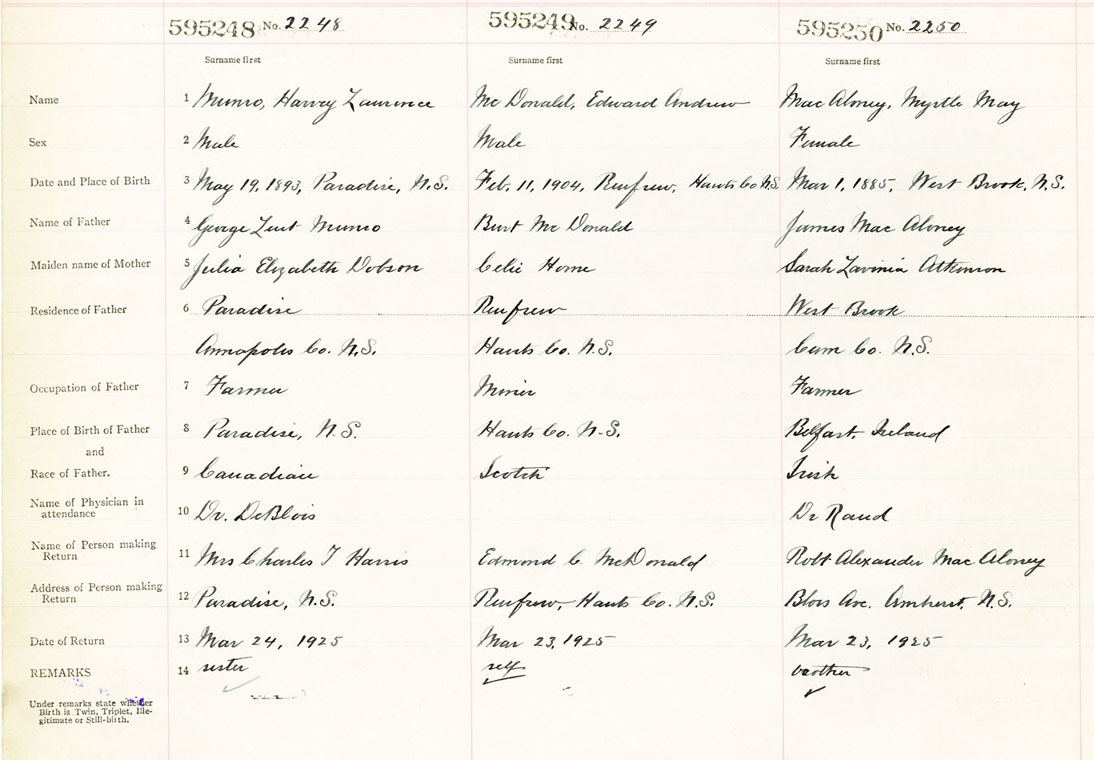 595248 No. 2248 595249 No. 2249 595250 No. 2250
Surname first Surname first Surname first
Name 1 Munro, Harvey Laurence Mc Donald, Edward Andrew Mac Aloney, Myrtle May
Sex 2 Male Male Female
Date and Place of Birth 3 May 19, 1893, Paradise, N.S. Feb. 11, 1904, Renfrew, Hants Co N.S. Mar 1, 1885, West Brook, N.S.
Name of Father 4 George Munro Burt Mc Donald James Mac Aloney
Maiden name of Mother 5 Julia Elizabeth Dobson Celie Horne Sarah Lavinia Atkinson
Residence of Father 6 Paradise Renfrew West Brook
Annapolis Co. N.S. Hants Co. N.S. Cum Co. N.S.
Occupation of Father 7 Farmer Miner Farmer
Place of Birth of Father 8 Paradise, N.S. Hants Co. N.S. Belfast, Ireland
and
Race of Father. 9 Canadian Scotch Irish
Name of Physician in
attendance 10 Dr. DeBlois Dr Rand
Name of Person making
Return 11 Mrs Charles T Harris Edmond C. McDonald Robt Alexander Mac Aloney
Address of Person making
Return 12 Paradise, N.S. Renfrew, Hants Co. N.S. Blois Ave. Amherst, N.S.
Date of Return 13 Mar 24, 1925 Mar 23, 1925 Mar 23, 1925
REMARKS 14 sister self brother
Under remarks state whether
Birth is Twin, Triplet, Ille-
gitimate or Still-birth.